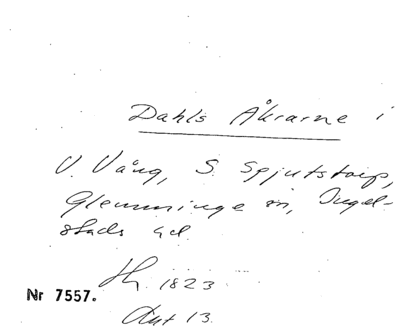 Dahls Åkrarne i
V. Vång, S. Spjutstorp,
Glemminge sn, Ingel-
stads hd.
1823
Nr 7557.
Akt 13.